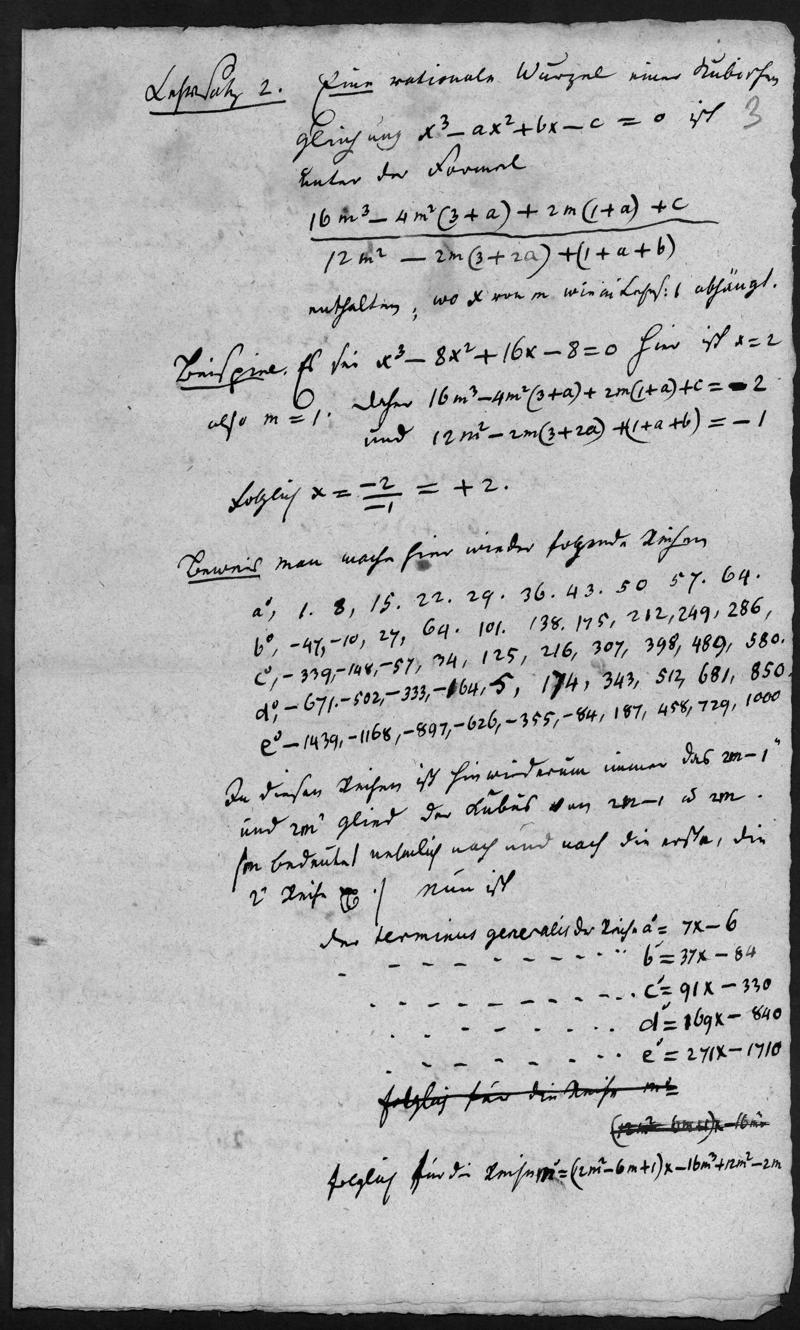 Lehrsatz 2. Eine rationale Wurzel einer Kubischen
3
gleichung x³ − ax² + bx − c = 0 ist
unter der Formel
16m³ − 4m²(3+a) + 2m(1+a) + c
12m² − 2m(3+2a) + (1+a+b)
enthalten, wo x von m wie in Lehrs: 1 abhängt.
Beispiel. Es sei x³ − 8x² + 16x − 8 = 0 hier ist x = 2
also m = 1. Daher 16m³ − 4m²(3+a) + 2m(1+a) + c = −2
und 12m² − 2m(3+2a) + (1+a+b) = −1
Folglich x = −2/−1 = +2.
Beweis man mache hier wieder folgende Reihen
a′, 1. 8, 15. 22. 29. 36. 43. 50 57. 64.
b′, −47, −10, 27, 64. 101. 138. 175, 212, 249, 286,
c′, −339, −148, −57, 34, 125, 216, 307, 398, 489, 580.
d′, −671. −502, −333, −164, 5, 174, 343, 512, 681, 850.
e′ −1439, −1168, −897, −626, −355, −84, 187, 458, 729, 1000
In diesen Reihen ist hinwiederum immer das 2m−1
und 2m glied der Kubus von 2m−1 u 2m.
(m bedeutet nehmlich nach und nach die erste, die
2 Reihe .) Nun ist
der terminus generalis der Reihe a′ = 7x − 6
b′ = 37x − 84
c′ = 91x − 330
d′ = 169x − 840
e′ = 271x − 1710
folglich für die Reihe m =
(12m² − 6m+1)x − 16m³
folglich für die Reihe m = (12m² − 6m + 1)x − 16m³ + 12m² − 2m